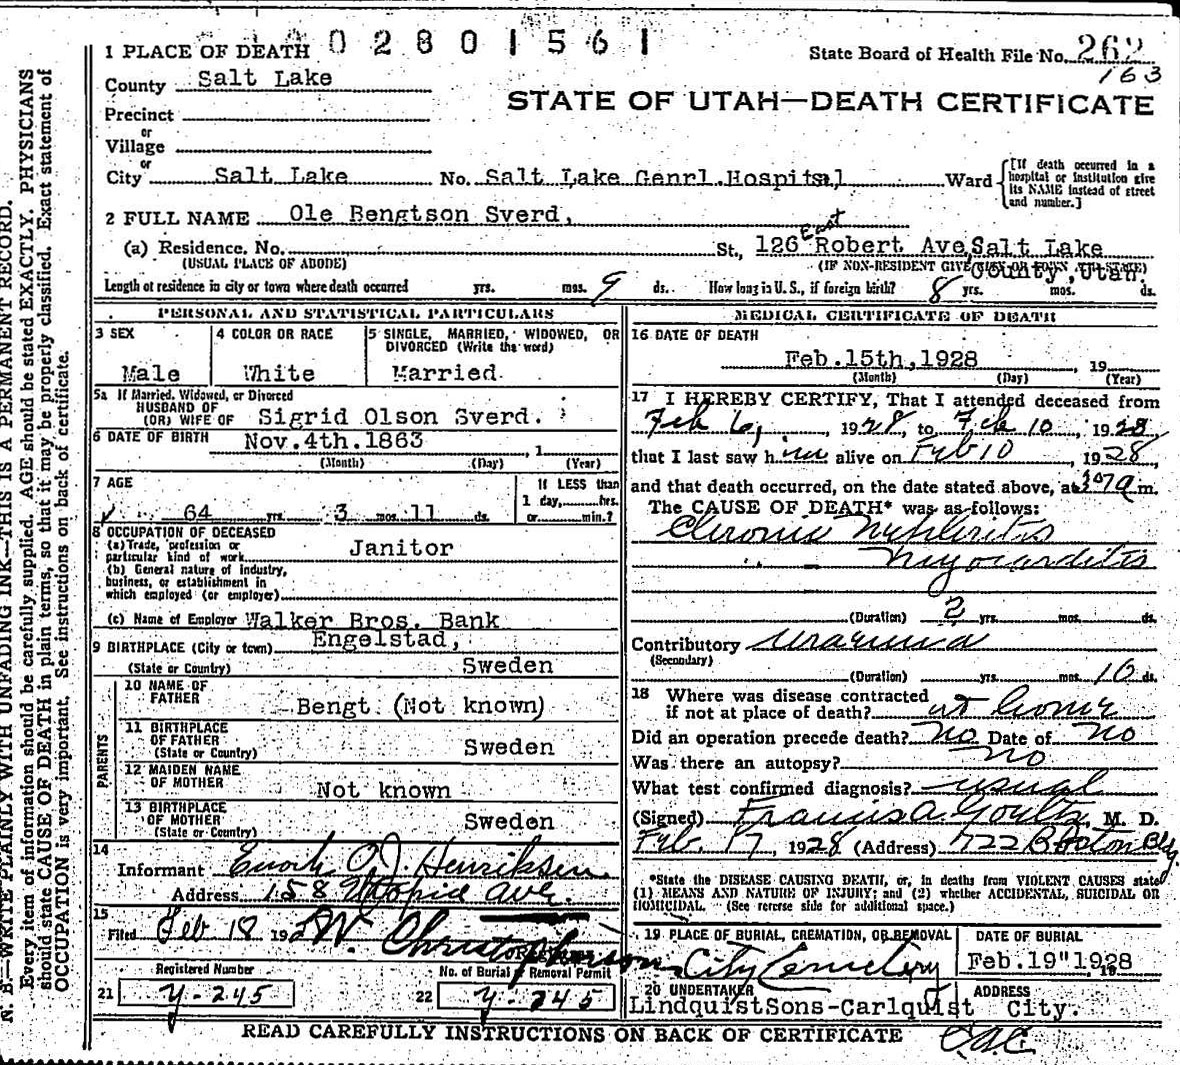 1 PLACE OF DEATH 0 2 8 0 1 5 6 1 State Board of Health File No. 262
163
County Salt Lake
STATE OF UTAH—DEATH CERTIFICATE
Precinct
or
Village
or
City Salt Lake No. Salt Lake Genrl. Hospital Ward [If death occurred in a hospital or institution give its NAME instead of street and number.]
2 FULL NAME Ole Bengtson Sverd,
(a) Residence, No. St., 126 East Robert Ave, Salt Lake County, Utah.
(USUAL PLACE OF ABODE) (IF NON-RESIDENT GIVE CITY OR TOWN AND STATE)
Length of residence in city or town where death occurred yrs. mos. 9 ds. How long in U. S., if foreign birth? 8 yrs. mos. ds.
PERSONAL AND STATISTICAL PARTICULARS
3 SEX
Male
4 COLOR OR RACE
White
5 SINGLE, MARRIED, WIDOWED, OR
DIVORCED (Write the word)
Married
5a If Married, Widowed, or Divorced
HUSBAND OF
(OR) WIFE OF Sigrid Olson Sverd.
6 DATE OF BIRTH Nov.4th.1863 , 1
(Month) (Day) (Year)
7 AGE
64 yrs. 3 mos. 11 ds.
If LESS than
1 day, hrs.
or min.?
8 OCCUPATION OF DECEASED
(a) Trade, profession or
particular kind of work Janitor
(b) General nature of industry,
business, or establishment in
which employed (or employer)
(c) Name of Employer Walker Bros. Bank
9 BIRTHPLACE (City or town) Engelstad,
(State or Country) Sweden
PARENTS
10 NAME OF
FATHER Bengt (Not known)
11 BIRTHPLACE
OF FATHER
(State or Country) Sweden
12 MAIDEN NAME
OF MOTHER Not known
13 BIRTHPLACE
OF MOTHER
(State or Country) Sweden
14
Informant Enoch O. J. Henriksen
Address 158 Utopia Ave.
15
Filed Feb 18 192 W. Christopherson
Registered Number
21 Y-245
No. of Burial or Removal Permit
22 Y-245
MEDICAL CERTIFICATE OF DEATH
16 DATE OF DEATH
Feb.15th,1928 , 19
(Month) (Day) (Year)
17 I HEREBY CERTIFY, That I attended deceased from
Feb 6, , 1928, to Feb 10 , 1928
that I last saw him alive on Feb 10 , 1928,
and that death occurred, on the date stated above, at a m.
The CAUSE OF DEATH* was as follows:
Chronic Nephritis
" Myocarditis
(Duration) 2 yrs. mos. ds.
Contributory uraemia
(Secondary)
(Duration) yrs. mos. 10 ds.
18 Where was disease contracted
if not at place of death? at home
Did an operation precede death? No Date of No
Was there an autopsy? No
What test confirmed diagnosis? usual
(Signed) Francis A. Goeltz, M. D.
Feb. 17, 1928 (Address) 722 Boston Bldg.
*State the DISEASE CAUSING DEATH, or, in deaths from VIOLENT CAUSES state
(1) MEANS AND NATURE OF INJURY; and (2) whether ACCIDENTAL, SUICIDAL OR
HOMICIDAL. (See reverse side for additional space.)
19 PLACE OF BURIAL, CREMATION, OR REMOVAL
City Cemetery
DATE OF BURIAL
Feb.19" 1928
20 UNDERTAKER
LindquistSons-Carlquist
ADDRESS
City.
READ CAREFULLY INSTRUCTIONS ON BACK OF CERTIFICATE
N. B.—WRITE PLAINLY WITH UNFADING INK—THIS IS A PERMANENT RECORD.
Every item of information should be carefully supplied. AGE should be stated EXACTLY. PHYSICIANS
should state CAUSE OF DEATH in plain terms, so that it may be properly classified. Exact statement of
OCCUPATION is very important. See instructions on back of certificate.